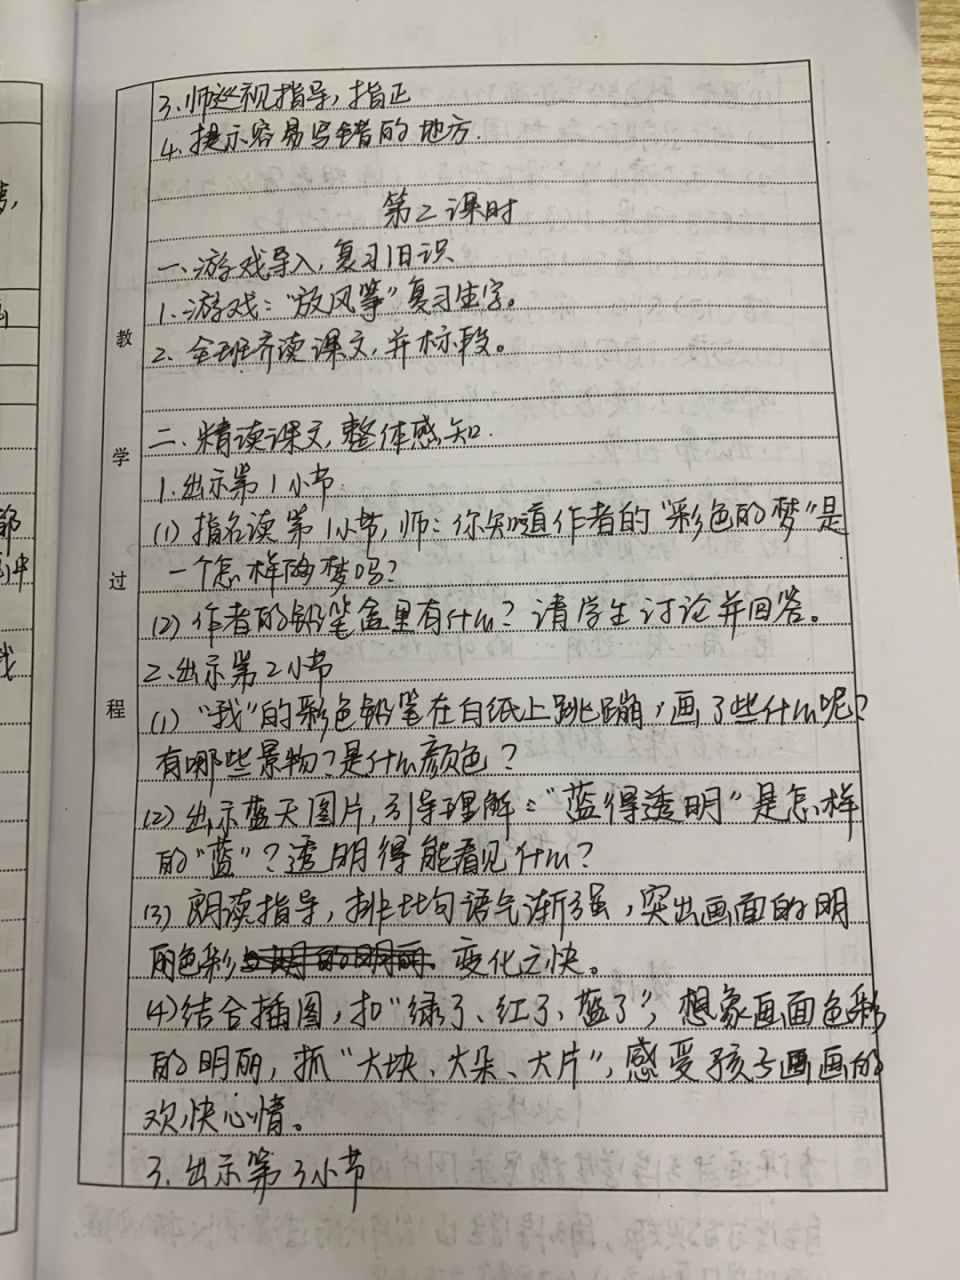 3.师巡视指导,指正
4.提示容易写错的地方.
第2课时
一.游戏导入,复习旧识
1.游戏:“放风筝”复习生字。
2.全班齐读课文,并标段。
二.精读课文,整体感知.
1.出示第1小节
(1)指名读第1小节,师:你知道作者的“彩色的梦”是
一个怎样的梦吗?
(2)作者的铅笔盒里有什么?请学生讨论并回答。
2.出示第2小节
(1)“我”的彩色铅笔在白纸上跳蹦,画了些什么呢?
有哪些景物?是什么颜色?
(2)出示蓝天图片,引导理解:“蓝得透明”是怎样
的“蓝”?透明得能看见什么?
(3)朗读指导,排比句语气渐强,突出画面的明
丽色彩 变化之快。
(4)结合插图,扣“绿了、红了、蓝了”,想象画面色彩
的明丽,抓“大块、大朵、大片”,感受孩子画画的
欢快心情。
3.出示第3小节
教
学
过
程